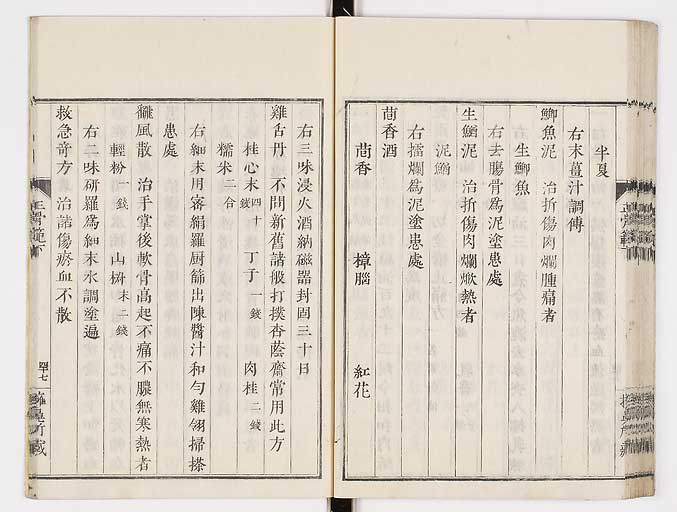 半夏
右末薑汁調傅
鯽魚泥 治折傷肉爛腫痛者
生鯽魚
右去膓骨為泥塗患處
生鰌泥 治折傷肉爛焮熱者
泥鰌
右擂爛為泥塗患處
茴香酒
茴香 樟腦 紅花
右三味浸火酒納磁器封固三十日
雞舌丹 不問新舊諸般打撲杏蔭齋常用此方
桂心末四十錢 丁子一錢 肉桂二錢
糯米二合
右細末用密絹羅厨篩出陳醬汁和勻雞翎掃搽
患處
黐風散 治手掌後軟骨高起不痛不膿無寒熱者
輕粉一錢 山梔末二錢
右二味研羅為細末水調塗遍
救急奇方 治諸傷瘀血不散
正骨範下
四十七